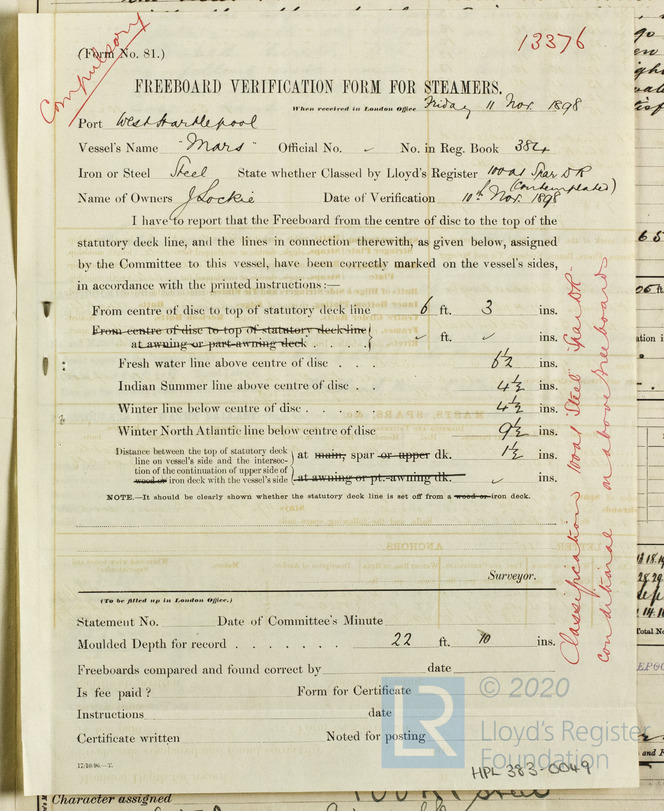 Compulsory
(Form No. 81.)
13376
FREEBOARD VERIFICATION FORM FOR STEAMERS.
When received in London Office Friday 11 Nov. 1898
Port West Hartlepool
Vessel's Name "Mars" Official No. No. in Reg. Book 384
Iron or Steel Steel State whether Classed by Lloyd's Register 100A1 Spar DK
(Contemplated)
Name of Owners J Lockie Date of Verification 10th Nov. 1898
I have to report that the Freeboard from the centre of disc to the top of the
statutory deck line, and the lines in connection therewith, as given below, assigned
by the Committee to this vessel, have been correctly marked on the vessel's sides,
in accordance with the printed instructions:—
From centre of disc to top of statutory deck line 6 ft. 3 ins.
From centre of disc to top of statutory deck line
at awning or part-awning deck . . . . ft. ins.
Fresh water line above centre of disc . . . 6½ ins.
Indian Summer line above centre of disc . . 4½ ins.
Winter line below centre of disc . . . . 4½ ins.
Winter North Atlantic line below centre of disc 9½ ins.
Distance between the top of statutory deck
line on vessel's side and the intersec-
tion of the continuation of upper side of
wood or iron deck with the vessel's side
at main, spar or upper dk. 1½ ins.
at awning or pt.-awning dk. ins.
NOTE.—It should be clearly shown whether the statutory deck line is set off from a wood or iron deck.
Surveyor.
(To be filled up in London Office.)
Statement No. Date of Committee's Minute
Moulded Depth for record . . . . . . . 22 ft. 10 ins.
Freeboards compared and found correct by date
Is fee paid ? Form for Certificate
Instructions date
Certificate written Noted for posting
17/10/96.—T.
Classification 100A1 Steel Spar DK
conditional on above freeboards
© 2020
LR
Lloyd's Register
Foundation
HPL 383-0049
Character assigned